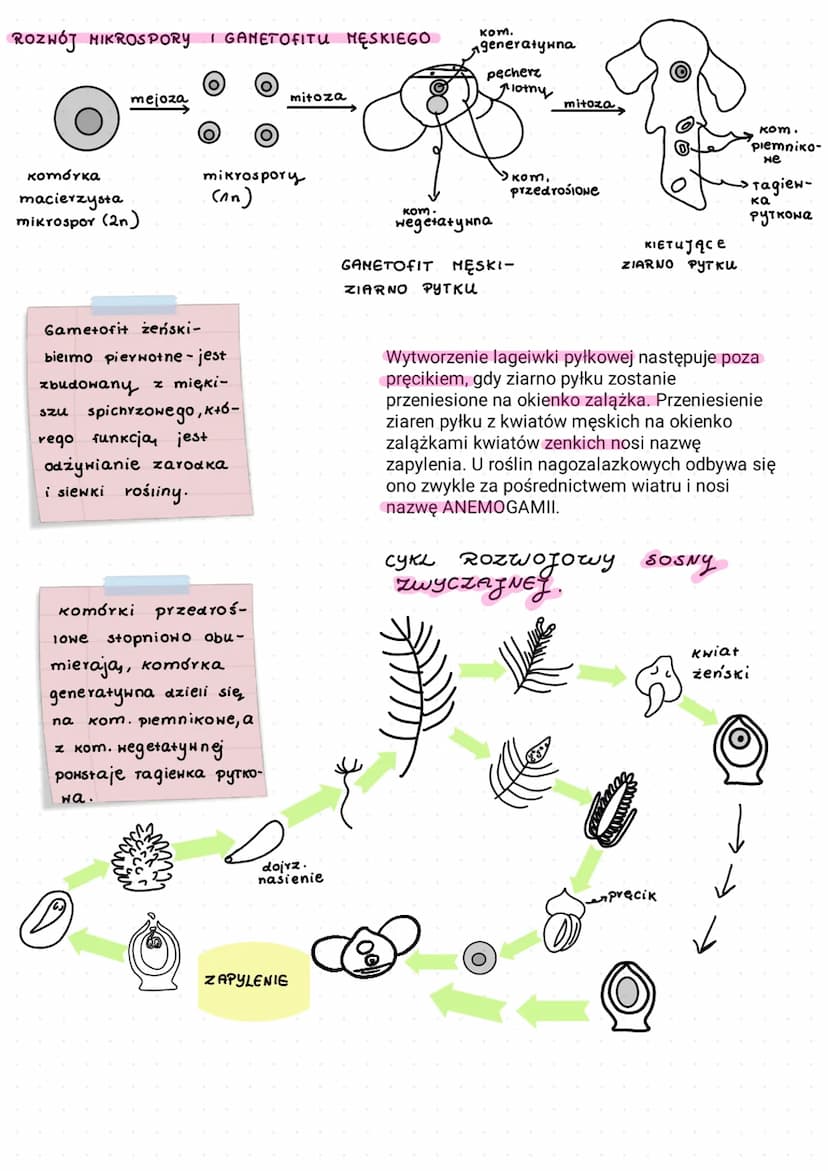 ROZWÓJ MIKROSPORY I GAMETOFITU MĘSKIEGO
komórka
macierzysta
mikrospor (2n)
mejoza
mikrospory
(1n)
mitoza
kom.
generatywna
pęcherz
lotny
kom.
przedroślowe
kom.
wegetatywna
GAMETOFIT MĘSKI-
ZIARNO PYŁKU
mitoza
kom.
plemniko-
we
łagiew-
ka
pyłkowa
KIEŁUJĄCE
ZIARNO PYŁKU
Gametofit żeński-
bielmo pierwotne - jest
zbudowany z mięki-
szu spichrzowego, któ-
rego funkcją jest
odżywianie zarodka
i siewki rośliny.
Wytworzenie lageiwki pyłkowej następuje poza
pręcikiem, gdy ziarno pyłku zostanie
przeniesione na okienko zalążka. Przeniesienie
ziaren pyłku z kwiatów męskich na okienko
zalążkami kwiatów zenkich nosi nazwę
zapylenia. U roślin nagozalazkowych odbywa się
ono zwykle za pośrednictwem wiatru i nosi
nazwę ANEMOGAMII.
CYKL ROZWOJOWY SOSNY
ZWYCZAJNEJ.
komórki przedroś-
lowe stopniowo obu-
mierają, komórka
generatywna dzieli się
na kom. plemnikowe, a
z kom. wegetatywnej
powstaje łagiewka pyłko-
wa.
kwiat
żeński
dojrz.
nasienie
pręcik
ZAPYLENIE